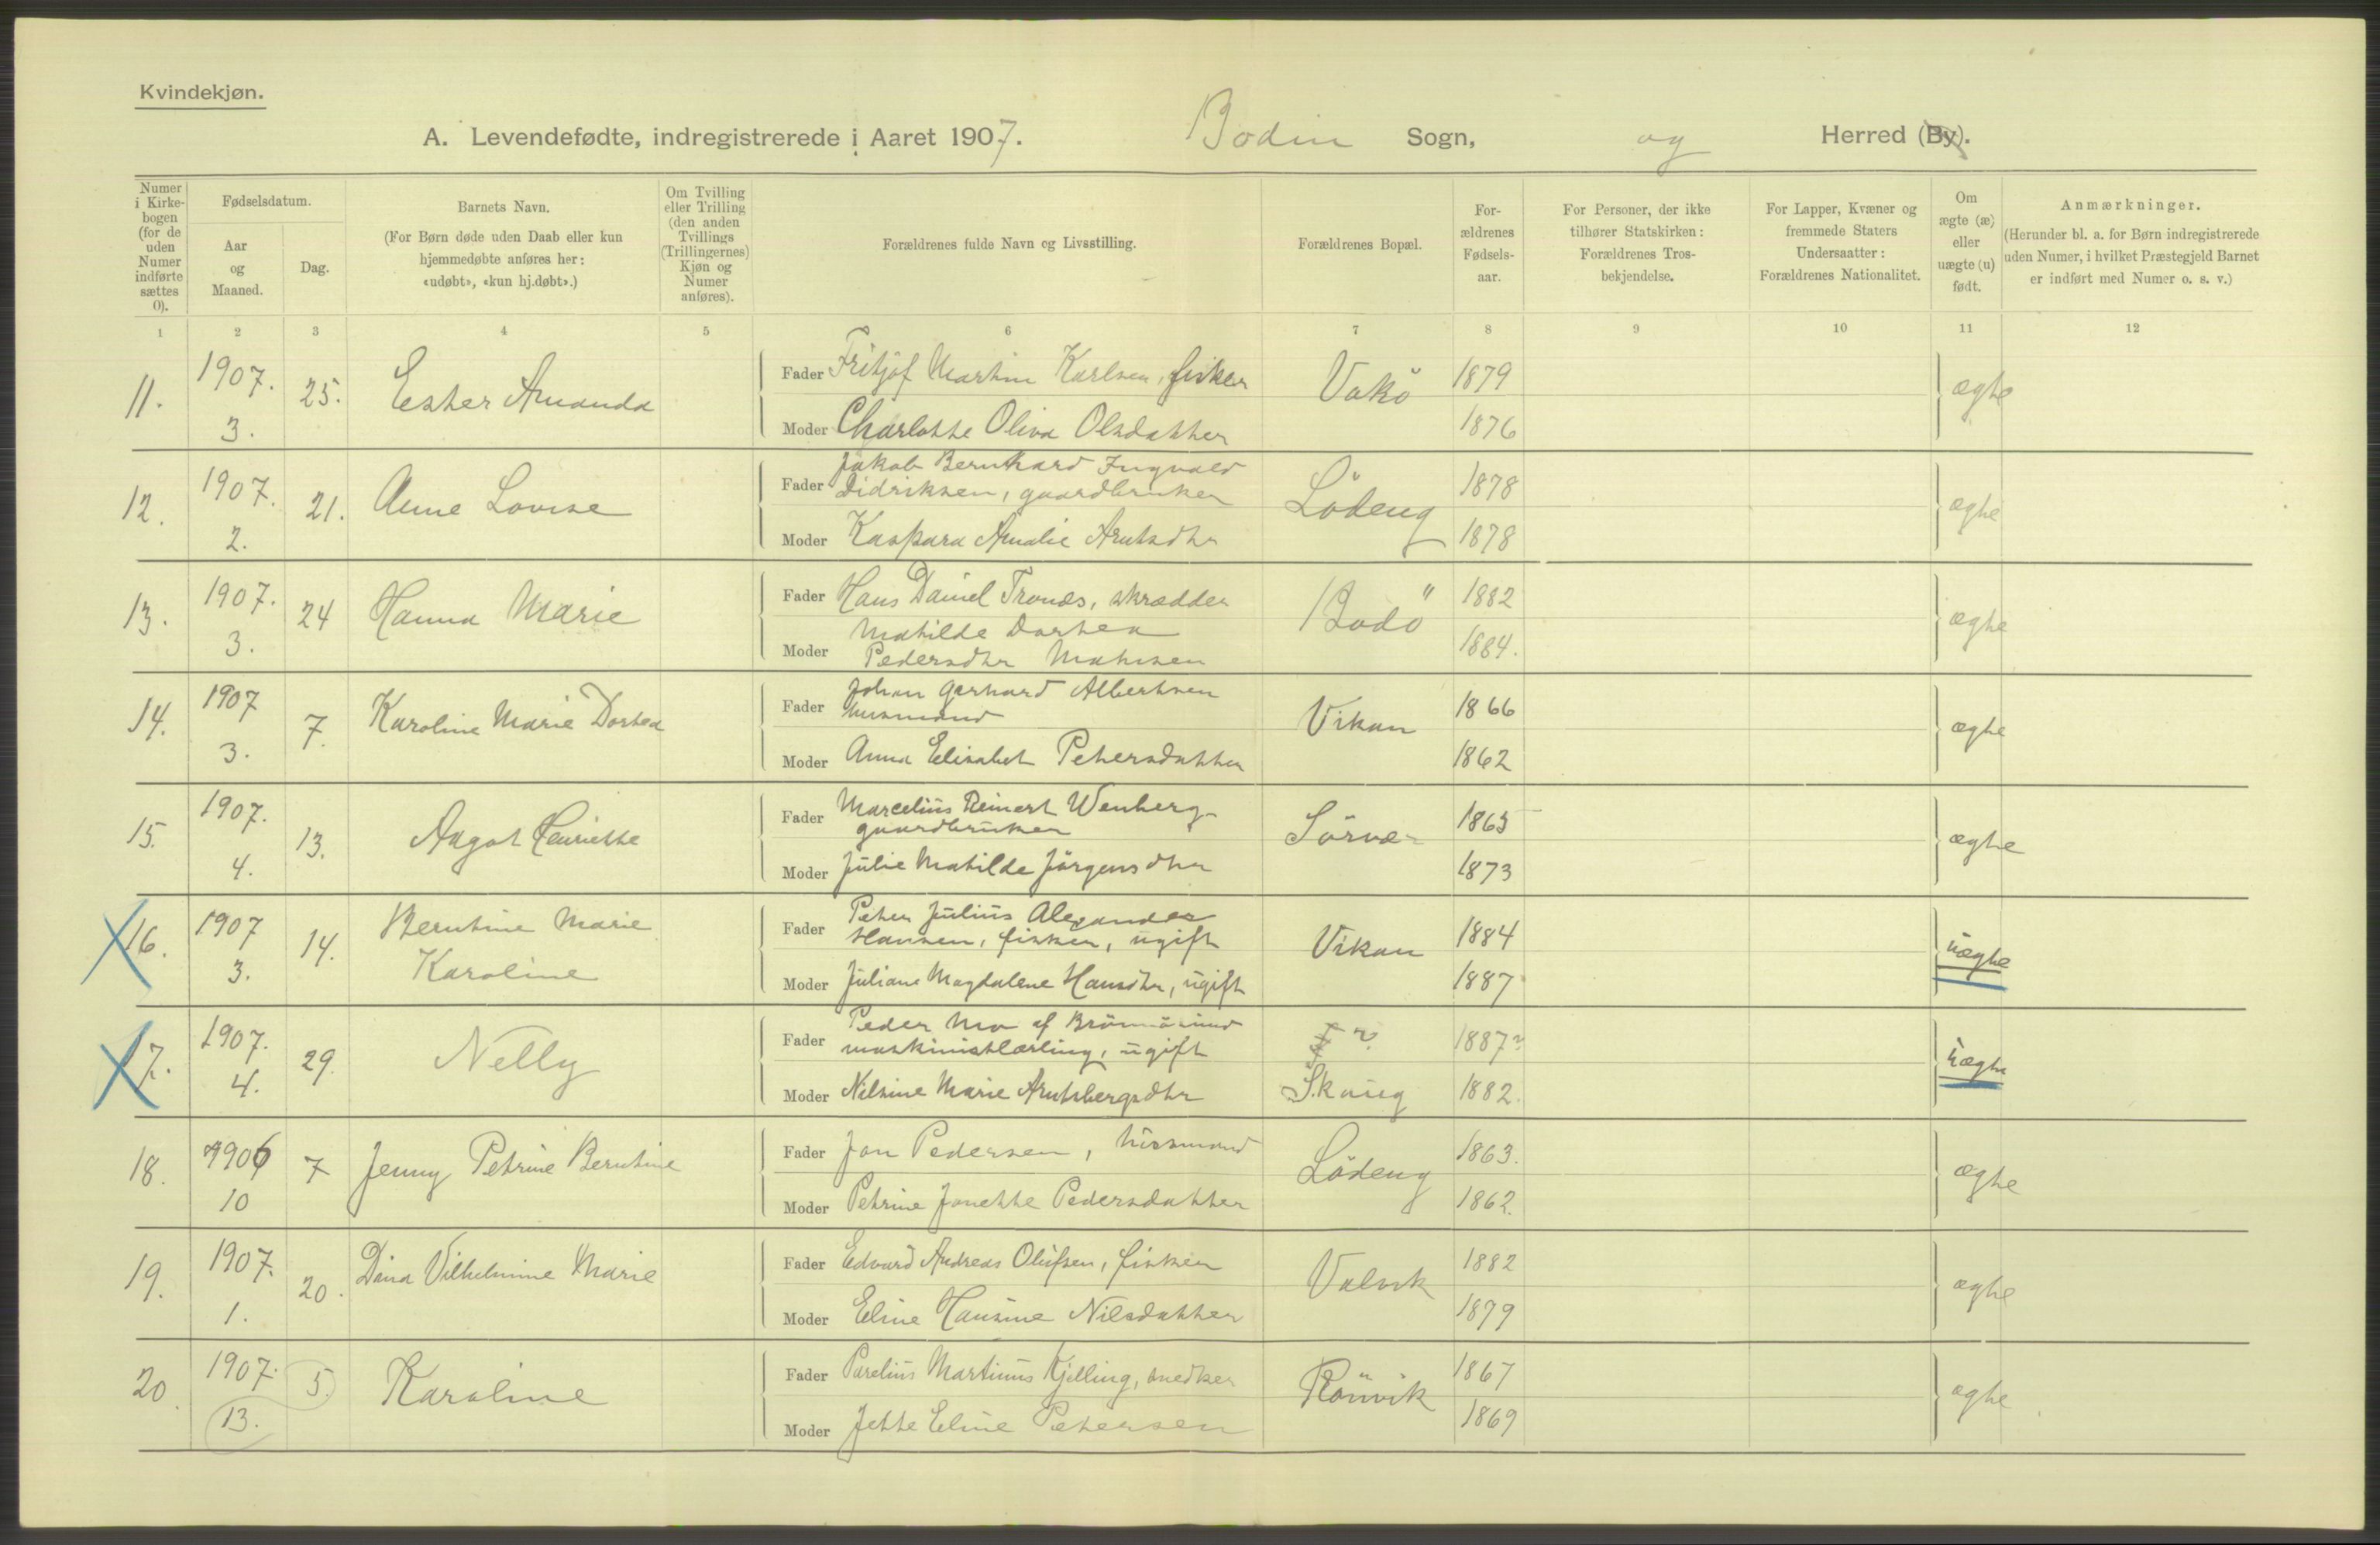 Kvindekjøn.
A. Levendefødte, indregistrerede i Aaret 1907. Bodin Sogn, og Herred (By).
Numer i Kirke-bogen (for de uden Numer indførte sættes 0).
Fødselsdatum.
Aar og Maaned.
Dag.
Barnets Navn.
(For Børn døde uden Daab eller kun hjemmedøbte anføres her: «udøbt», «kun hj.døbt».)
Om Tvilling eller Trilling (den anden Tvillings (Trillingernes) Kjøn og Numer anføres).
Forældrenes fulde Navn og Livsstilling.
Forældrenes Bopæl.
For-ældrenes Fødsels-aar.
For Personer, der ikke tilhører Statskirken: Forældrenes Tros-bekjendelse.
For Lapper, Kvæner og fremmede Staters Undersaatter: Forældrenes Nationalitet.
Om ægte (æ) eller uægte (u) født.
Anmærkninger.
(Herunder bl. a. for Børn indregistrerede uden Numer, i hvilket Præstegjeld Barnet er indført med Numer o. s. v.)
1 2 3 4 5 6 7 8 9 10 11 12
11. 1907. 25. Ester Amanda Fader Fritjof Martin Karlsen, fisker Vakö 1879 ægte
3. Moder Charlotte Oliva Olsdatter 1876
12. 1907. 21. Anne Lovise Fader Jakob Bernhard Ingvald
Didriksen, gaardbruker Löding 1878 ægte
2. Moder Kaspara Amalie Arntsdtr 1878
13. 1907. 24 Hanna Marie Fader Hans Daniel Tronæs, skrædder Bodö 1882 ægte
3. Moder Matilde Dortea
Pedersdtr Mathisen 1884.
14. 1907 7. Karoline Marie Dortea Fader Johan Gerhard Albertsen
husmand Vikan 1866 ægte
3. Moder Anna Elisabet Petersdatter 1862
15. 1907. 13. Aagot Henriette Fader Marcelius Reinert Wenberg
gaardbruker Sörvæ 1865 ægte
4. Moder Julie Matilde Jörgensdtr 1873
16. 1907 14. Berntine Marie Fader Peter Julius Alexander
Hansen, fisker, ugift Vikan 1884 uægte
3. Karoline Moder Juliane Magdalene Hansdtr, ugift 1887
17. 1907. 29. Nelly Fader Peder Mo af Brönnösund
maskinistlærling, ugift ? 1887? uægte
4. Moder Nilsine Marie Arntsbergsdtr Skaug 1882.
18. 1906 7 Jenny Petrine Berntine Fader Jon Pedersen, husmand Löding 1863. ægte
10 Moder Petrine Jonette Pedersdatter 1862.
19. 1907. 20. Dina Vilhelmine Marie Fader Edvard Andreas Olufsen, fisker Valvik 1882 ægte
1. Moder Eline Hansine Nilsdatter 1879
20. 1907. 5. Karoline Fader Parelius Martinus Kjelling, snedker Rönvik 1867 ægte
13. Moder Jette Eline Petersen 1869